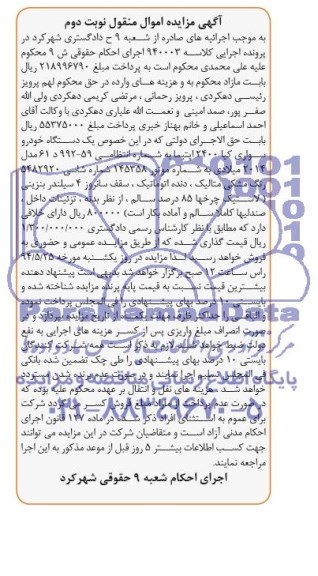 آگهی مزایده اموال منقول نوبت دوم
به موجب اجرائیه های صادره از شعبه ۹ ح دادگستری شهرکرد در
پرونده اجرایی کلاسه ۹۴۰۰۰۳ اجرای احکام حقوقی ش ۹ محکوم
علیه علی محمدی محکوم است به پرداخت مبلغ ۲۱۸۹۹۶۷۹۰ ریال
بابت مازاد محکوم به و هزینه های وارده در حق محکوم لهم پرویز
رئیسی دهکردی ، پرویز رحمانی ، مرتضی کریمی دهکردی ولی الله
صفر پور، صمد امینی و نعمت الله علیاری دهکردی با وکالت آقای
احمد اسماعیلی و خانم بهناز خیری پرداخت مبلغ ۵۵۳۷۵۰۰۰ ریال
بابت حق الاجرای دولتی که در این خصوص یک دستگاه خودرو
سواری کیا ۲۴۰۰ اپتیما به شماره انتظامی ۵۹-۹۹۲ د ۶۱ مدل
۲۰۱۴ میلادی به شماره موتور ۱۴۵۳۵۸ شماره شاسی ۵۴۸۲۹۲۰
رنگ مشکی متالیک ، دنده اتوماتیک ، سقف سانروز ۴ سیلندر بنزینی
لاستیک چرخها ۸۵ درصد سالم ، از نظر بدنه ، تزئینات داخل ،
صندلیها کاملا سالم و آماده بکار است) ۸۰۰۰۰۰ ریال دارای خلافی
دارد که مطابق با نظر کارشناس رسمی دادگستری ۱/۳۰۰/۰۰۰/۰۰۰
ریال قیمت گذاری شده که از طریق مزایده عمومی و حضوری به
فروش خواهد رسید لذا مزایده در روز یکشنبه مورخه ۹۴/۵/۲۵
راس ساعت ۱۲ صبح برگزار خواهد شد بدیهی است پیشنهاد دهنده
بیشترین قیمت نسبت به قیمت پایه برنده مزایده شناخته شده و
بایستی ۱۰ درصد بهای پیشنهادی را فی المجلس پرداخت نموده
و الباقی را حداکثر ظرف مهلت یکماه از تاریخ مزایده بپردازد و در
صورت انصراف مبلغ واریزی پس از کسر هزینه های اجرایی به نفع
دولت ضبط خواهد شد لازم به ذکر است همه شرکت کنندگان
بایستی ۱۰ درصد بهای پیشنهادی را طی چک تضمین شده بانکی
فی المجلس تسلیم اجرا نمایند و در صورت عدم برنده شدن مسترد
خواهد شد هزینه های نقل و انتقال بر عهده محکوم علیه بوده که
در صورت عدم پرداخت از مبلغ فروش کسر می گردد شرکت
برای عموم به استثنای افراد ذکر شده در ماده ۱۲۷ قانون اجرای
احکام مدنی آزاد است و متقاضیان شرکت در این مزایده می توانند
جهت کسب اطلاعات بیشتر ۵ روز قبل از موعد مذکور به این اجرا
مراجعه نمایند.
اجرای احکام شعبه ۹ حقوقی شهرکرد
پایگاه اطلاع رسانی مناقصه و مزایده
۰۲۱-۸۸۳۴۹۶۷۰-۵